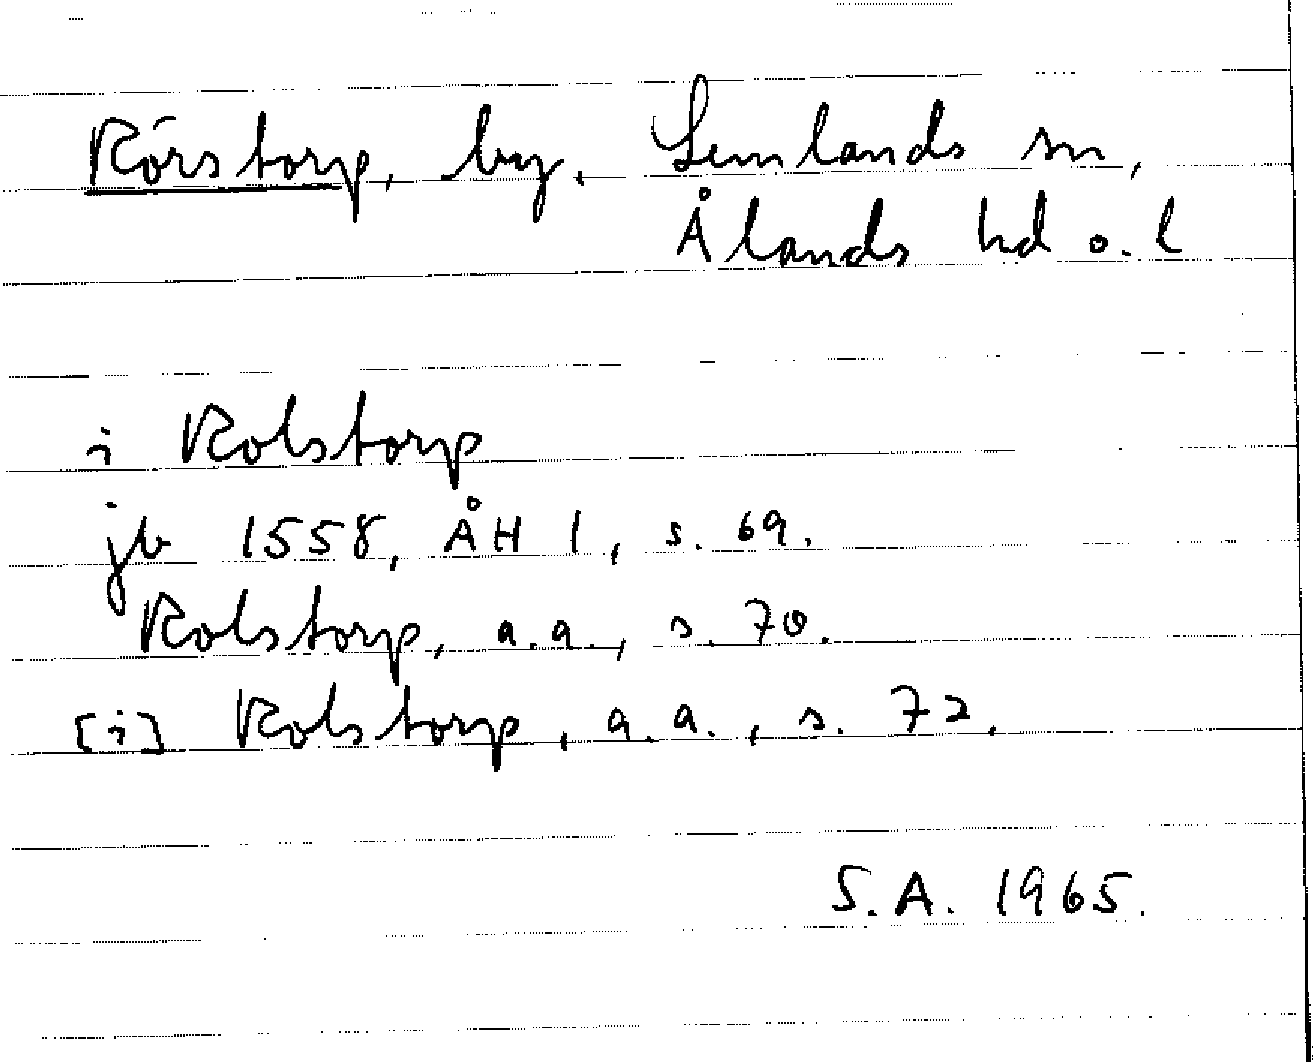 Rörstorp, by. Lemlands sn,
Ålands hd o. l
i Rolstorp
jb 1558, ÅH 1, s. 69.
Rolstorp, a.a., s. 70.
[i] Rolstorp, a.a., s. 72.
S.A. 1965.